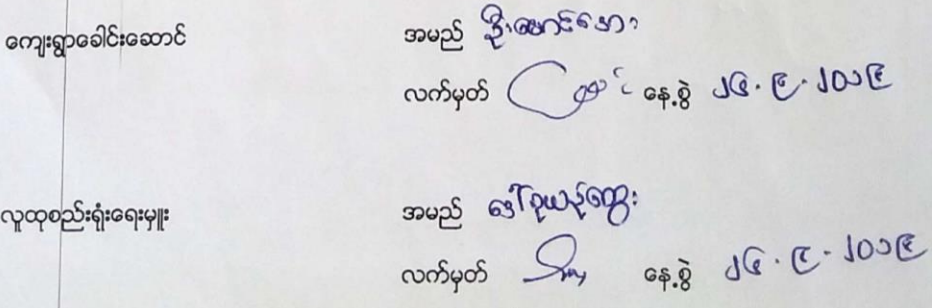 ကျေးရွာခေါင်းဆောင် အမည် ဦး
လက်မှတ် နေ့စွဲ ၂၄.၉.၂၀၁၉
လူထုစည်းရုံးရေးမှူး အမည် ဒေါ်
လက်မှတ် နေ့စွဲ ၂၄.၉.၂၀၁၉